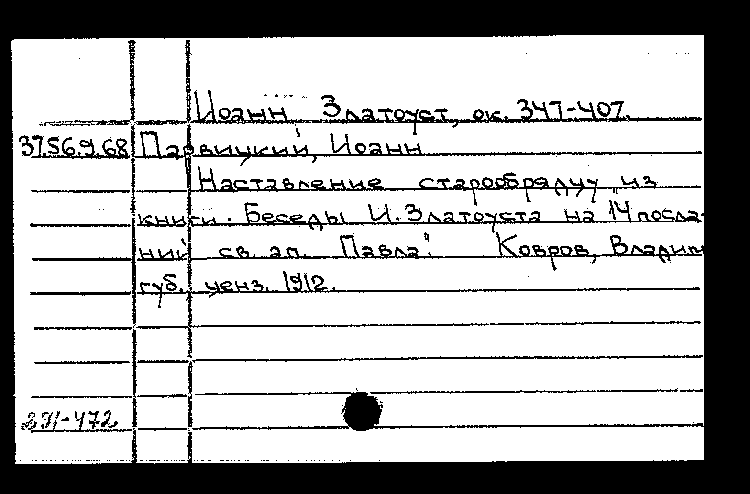 Иоанн Златоуст, ок. 347-407.
37.56.9.68 Парвицкий, Иоанн
Наставление старообрядцу из
книги. Беседы И. Златоуста на 14 посла-
ний св. ап. Павла". Ковров, Владим
губ. ценз. 1912.